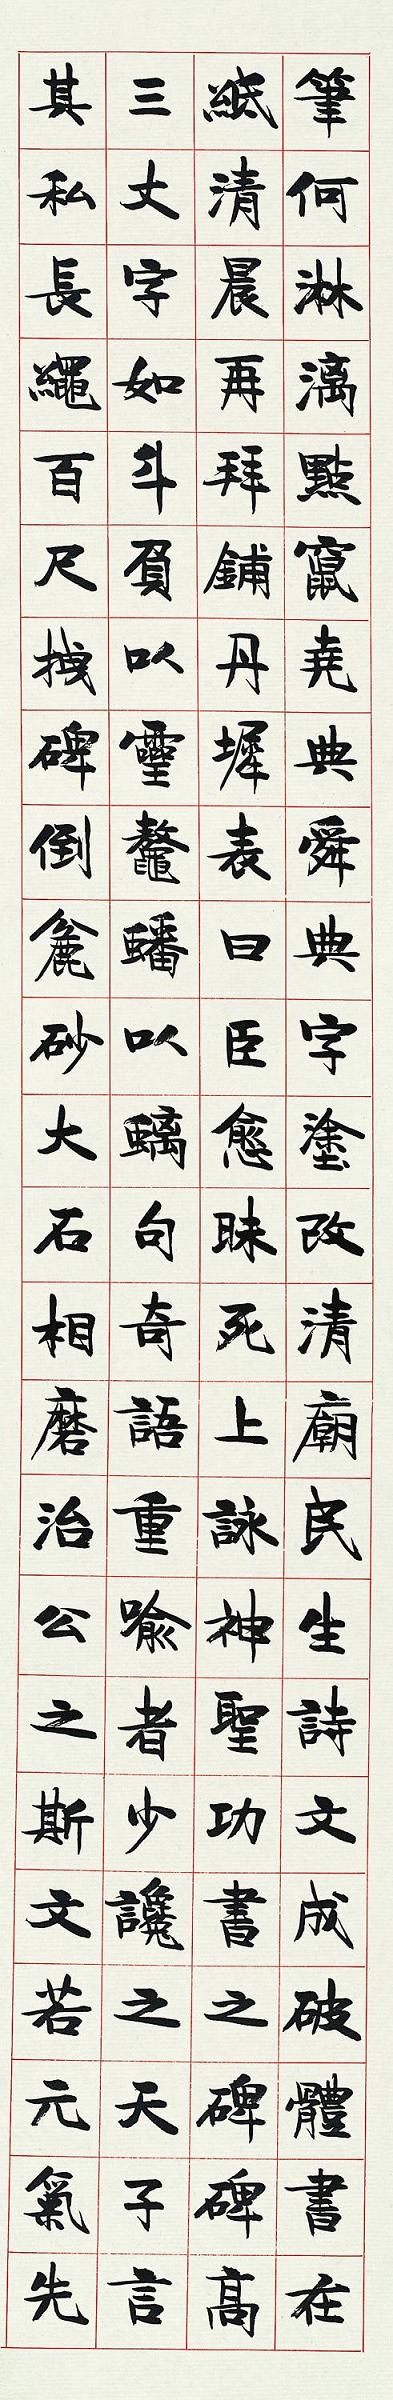 筆何淋漓點竄堯典舜典字塗改清廟民生詩文成破體書在
紙清晨再拜鋪丹墀表曰臣愈昧死上詠神聖功書之碑碑高
三丈字如斗負以靈鼇蟠以螭句奇語重喻者少讒之天子言
其私長繩百尺拽碑倒麄砂大石相磨治公之斯文若元氣先